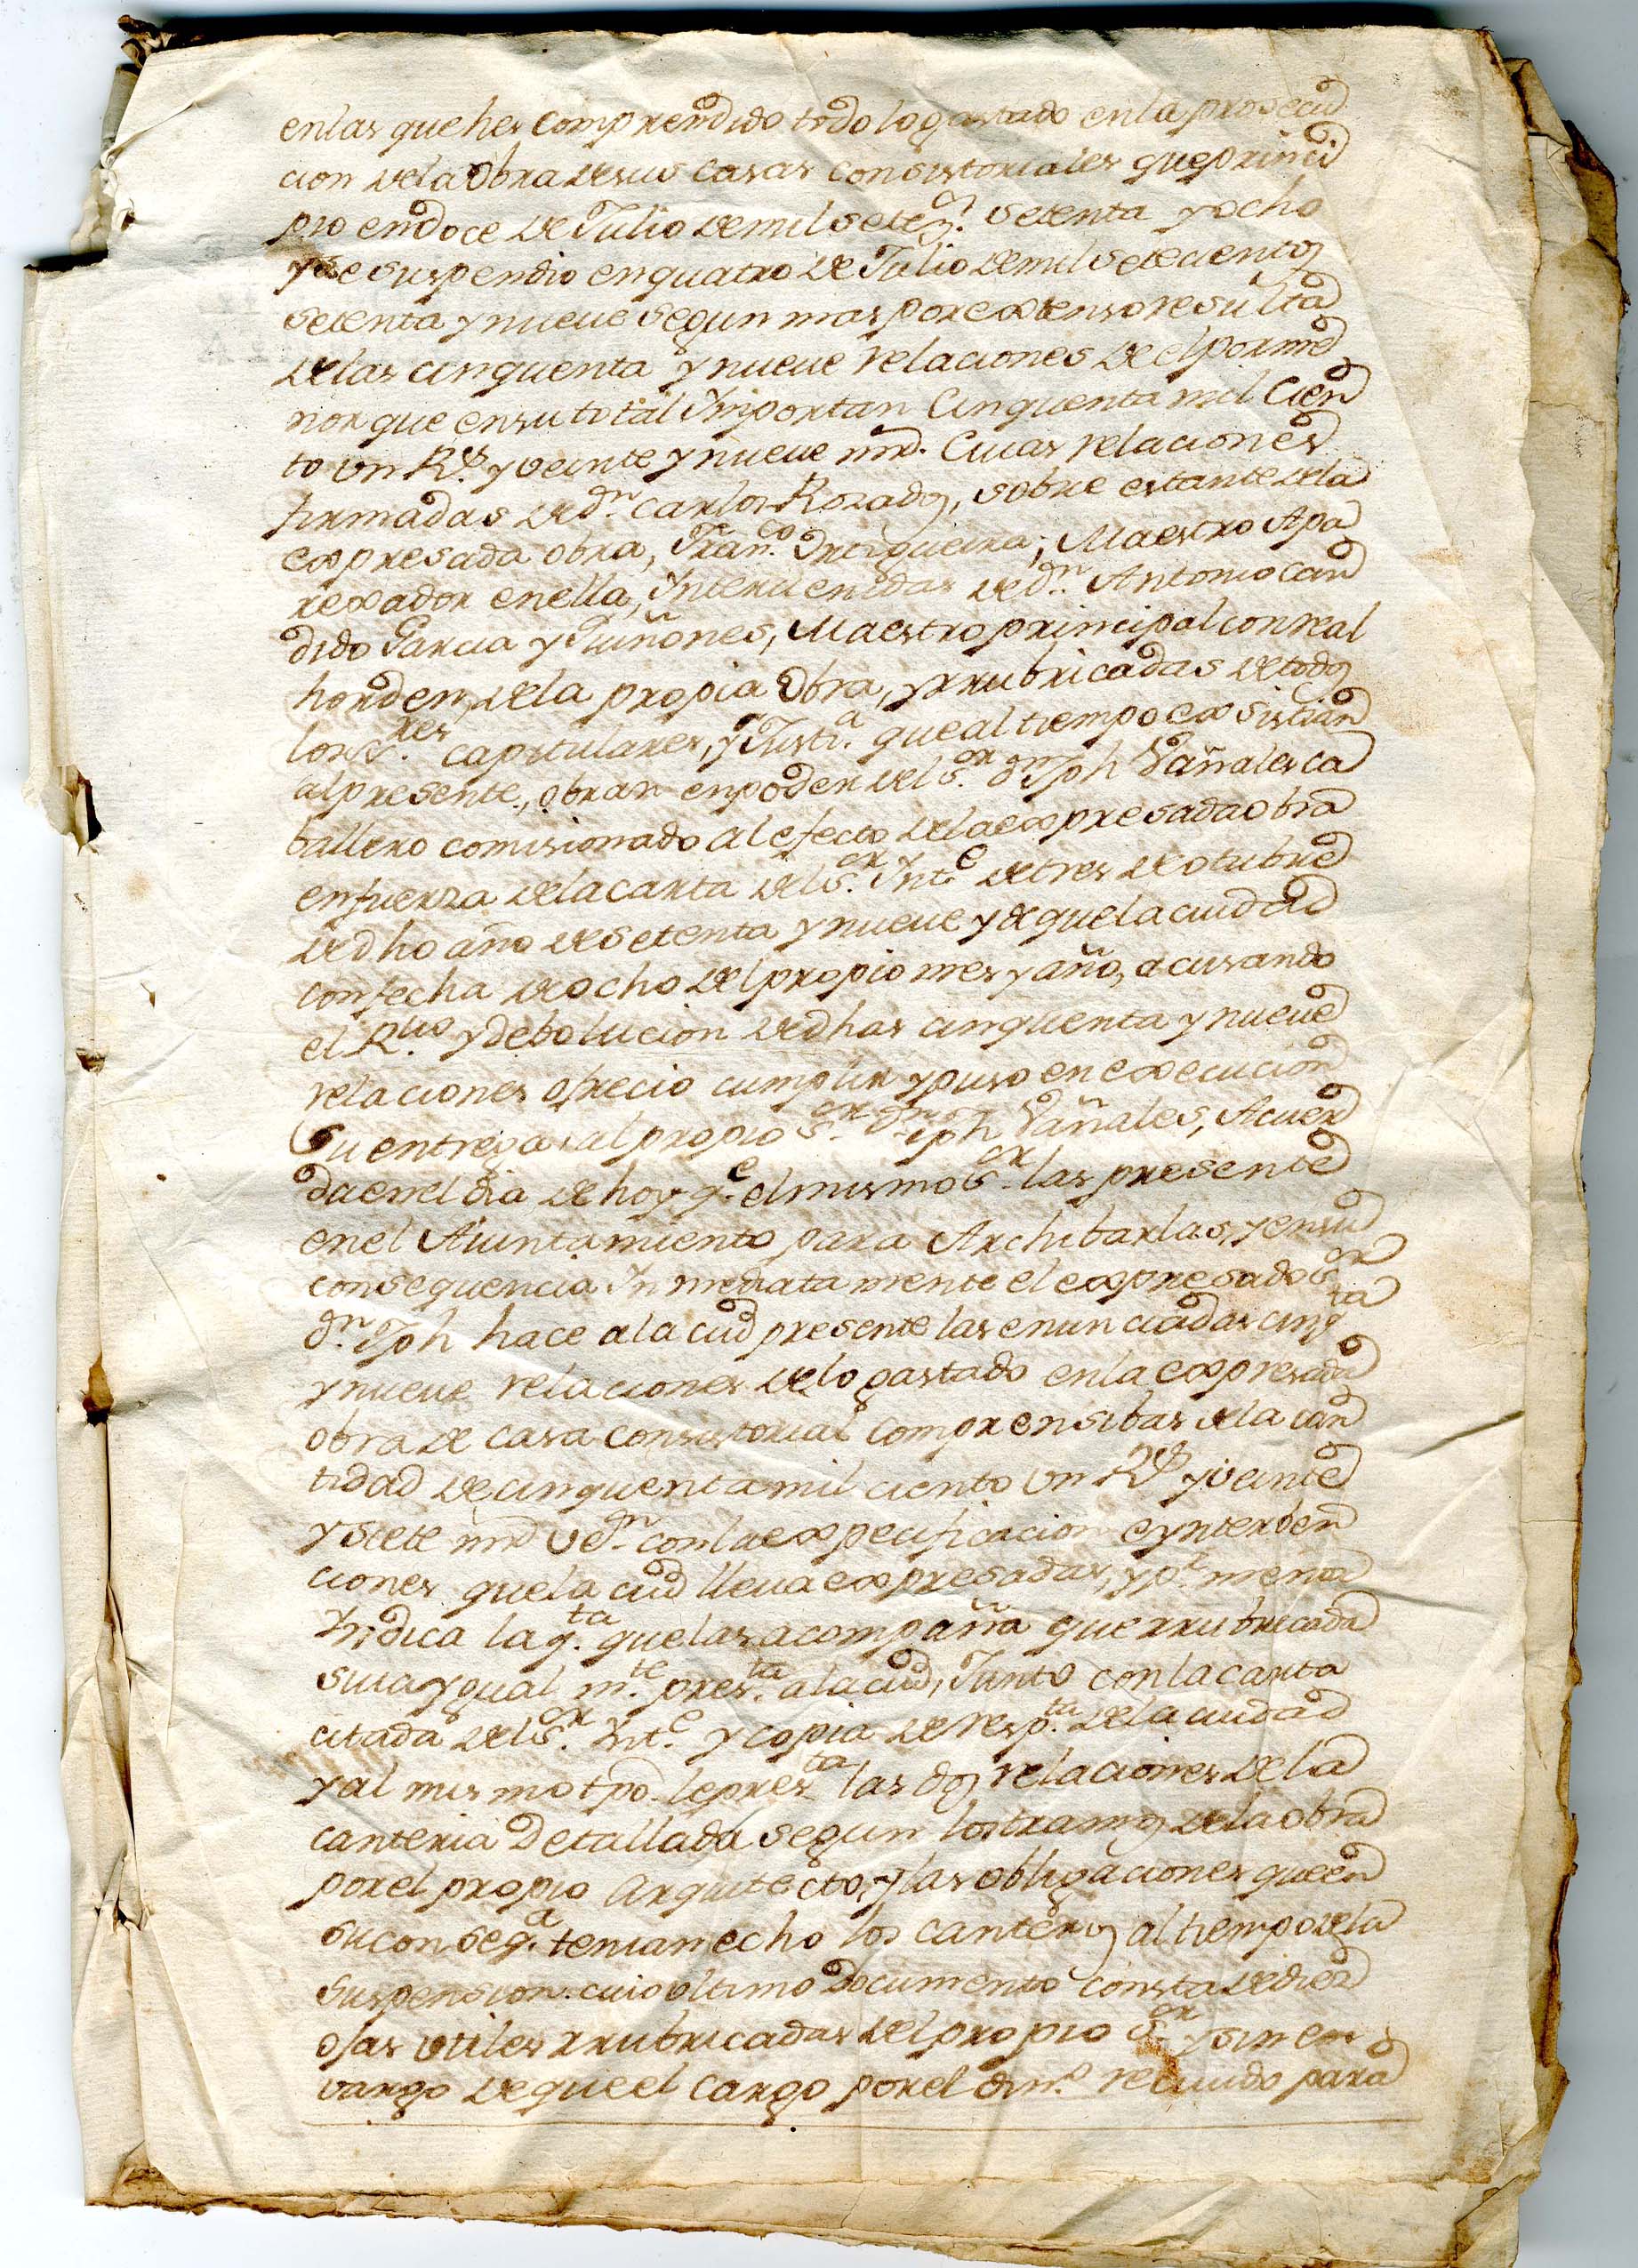 en las que hes comprendido todo lo gastado en la prosecu
cion de la Obra de sus casas consistoriales que princi
pio en doce de Julio de mil setez.s setenta y ocho
y se suspendio en quatro de Julio de mil setecientos
setenta y nueue segun mas por extenso resulta
de las cinquenta y nueue relaciones de el porme
nor que en su total Ymportan Cinquenta mil Cien
to vn R.s y veinte y nueue mrd. Cuias relaciones
firmadas de d.n Carlos Rosados, sobre estante de la
expresada obra, Fran.co Ortigueira; Maestro Apa
rexador en ella, Yntervenidas de d.n Antonio Can
dido Garcia y Quiñones, Maestro principal con real
horden, de la propia Obra, y rrubricadas de todos
los S.res capitulares, y Justi.a que al tiempo existian
al presente, obran en poder del S.or d.n Jph Vañales ca
ballero comisionado al efecto de la expresada obra
en fuerza de la carta del S.or Ynt.e de tres de otubre
de dho año de setenta y nueue y de que la ciudad
con fecha de ocho del propio mes y año, acusando
el R.uo y debolucion de dhas cinquenta y nueue
relaciones ofrecio cumplir y puso en execucion
su entrega al propio S.or d.n Jph Vañales, Acuer
da en el dia de hoy q.e el mismo S.or las presente
en el Aiuntamiento para Archibarlas, y en su
consequencia Ynmediatamente el expresado S.or
d.n Jph hace a la ciud presente las enunciadas cinq.ta
y nueue relaciones de lo gastado en la expresada
obra de casa consistorial comprensibas de la can
tidad de cinquenta mil ciento vn R.s y veinte
y siete mrd v.n con la expecificacion e ynterben
ciones que la ciud lleua expresadas, y p.r menor
Yndica la q.ta que las acompaña que rrubricada
suia ygual m.te pres.ta a la ciud, Junto con la carta
citada del S.or Ynt.e y copia de resp.ta de la ciudad
y al mismo tpo. le pres.ta las dos relaciones de la
canteria Detallada segun los tramos de la obra
por el propio Arquitecto, y las obligaciones que en
su conseq.a tenian echo los canteros al tiempo de la
suspension. cuio vltimo Documento consta de diez
ojas vtiles rrubricadas del propio S.or y sin en
vargo de que el Cargo por el din.o reciuido para